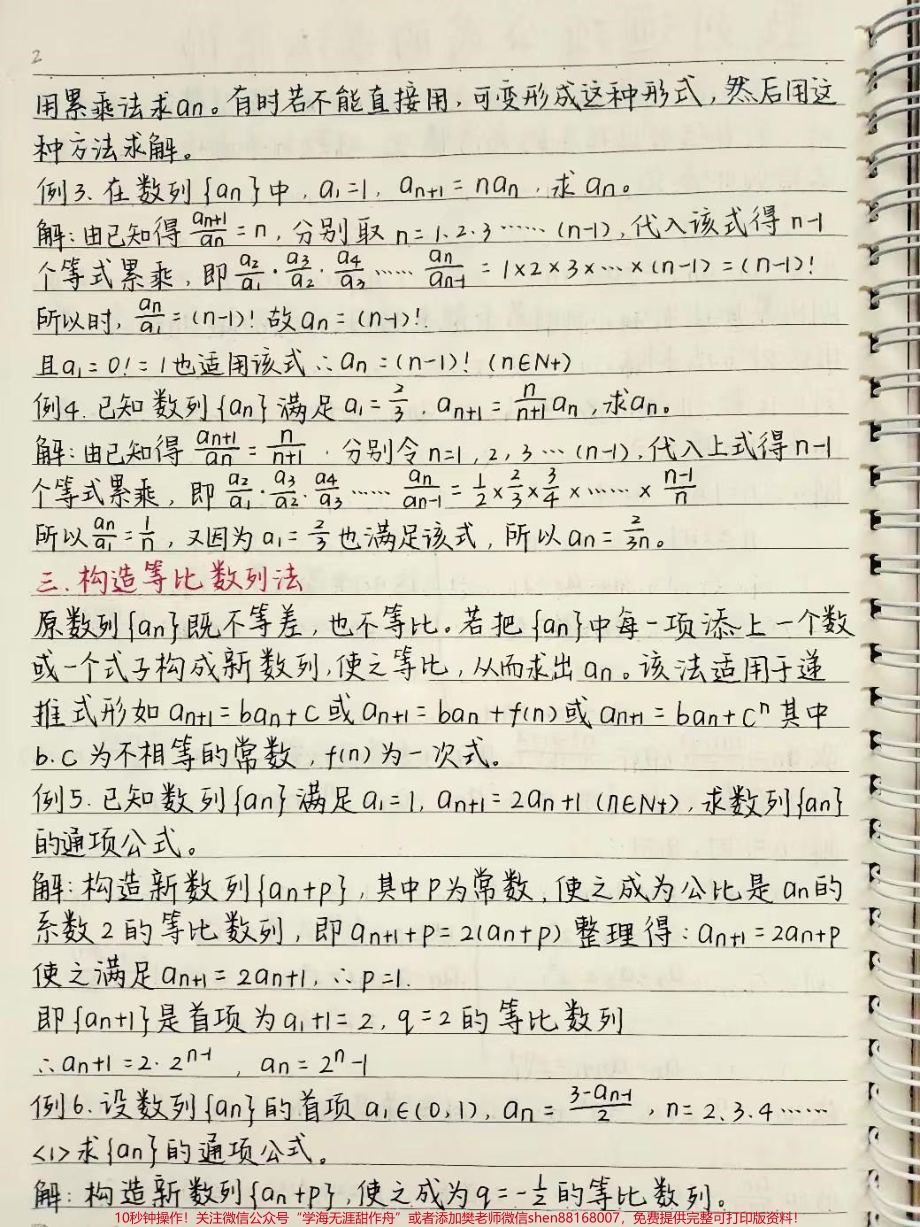 2
用累乘法求an。有时若不能直接用,可变形成这种形式,然后用这
种方法求解。
例3.在数列{an}中,a₁=1, aₙ₊₁=naₙ,求an。
解:由已知得 aₙ₊₁/aₙ=n,分别取n=1、2、3……(n-1),代入该式得n-1
个等式累乘,即 a₂/a₁·a₃/a₂·a₄/a₃……aₙ/aₙ₋₁=1×2×3×…×(n-1)=(n-1)!
所以时, aₙ/a₁=(n-1)!故an=(n-1)!
且a₁=0!=1也适用该式∴an=(n-1)! (n∈N+)
例4.已知数列{an}满足a₁=2/3, aₙ₊₁=n/(n+1) aₙ,求an。
解:由已知得 aₙ₊₁/aₙ=n/(n+1) .分别令n=1,2,3…(n-1),代入上式得n-1
个等式累乘,即 a₂/a₁·a₃/a₂·a₄/a₃……aₙ/aₙ₋₁=1/2×2/3×3/4×……×(n-1)/n
所以aₙ/a₁=1/n,又因为a₁=2/3也满足该式,所以an=2/3n。
三.构造等比数列法
原数列{an}既不等差,也不等比。若把{an}中每一项添上一个数
或一个式子构成新数列,使之等比,从而求出an。该法适用于递
推式形如aₙ₊₁=baₙ+c或aₙ₊₁=baₙ+f(n)或aₙ₊₁=baₙ+cⁿ其中
b.c为不相等的常数,f(n)为一次式。
例5.已知数列{an}满足a₁=1, aₙ₊₁=2aₙ+1(n∈N+),求数列{an}
的通项公式。
解:构造新数列{an+p},其中p为常数,使之成为公比是an的
系数2的等比数列,即aₙ₊₁+p=2(aₙ+p)整理得:aₙ₊₁=2aₙ+p
使之满足aₙ₊₁=2aₙ+1,∴p=1.
即{an+1}是首项为a₁+1=2,q=2的等比数列
∴an+1=2·2ⁿ⁻¹ , an=2ⁿ-1
例6.设数列{an}的首项a₁∈(0,1), an=(3-aₙ₋₁)/2 ,n=2.3.4……
<1>求{an}的通项公式。
解:构造新数列{an+p},使之成为q=-1/2的等比数列。
10秒钟操作!关注微信公众号“学海无涯甜作舟”或者添加樊老师微信shen88168007,免费提供完整可打印版资料!